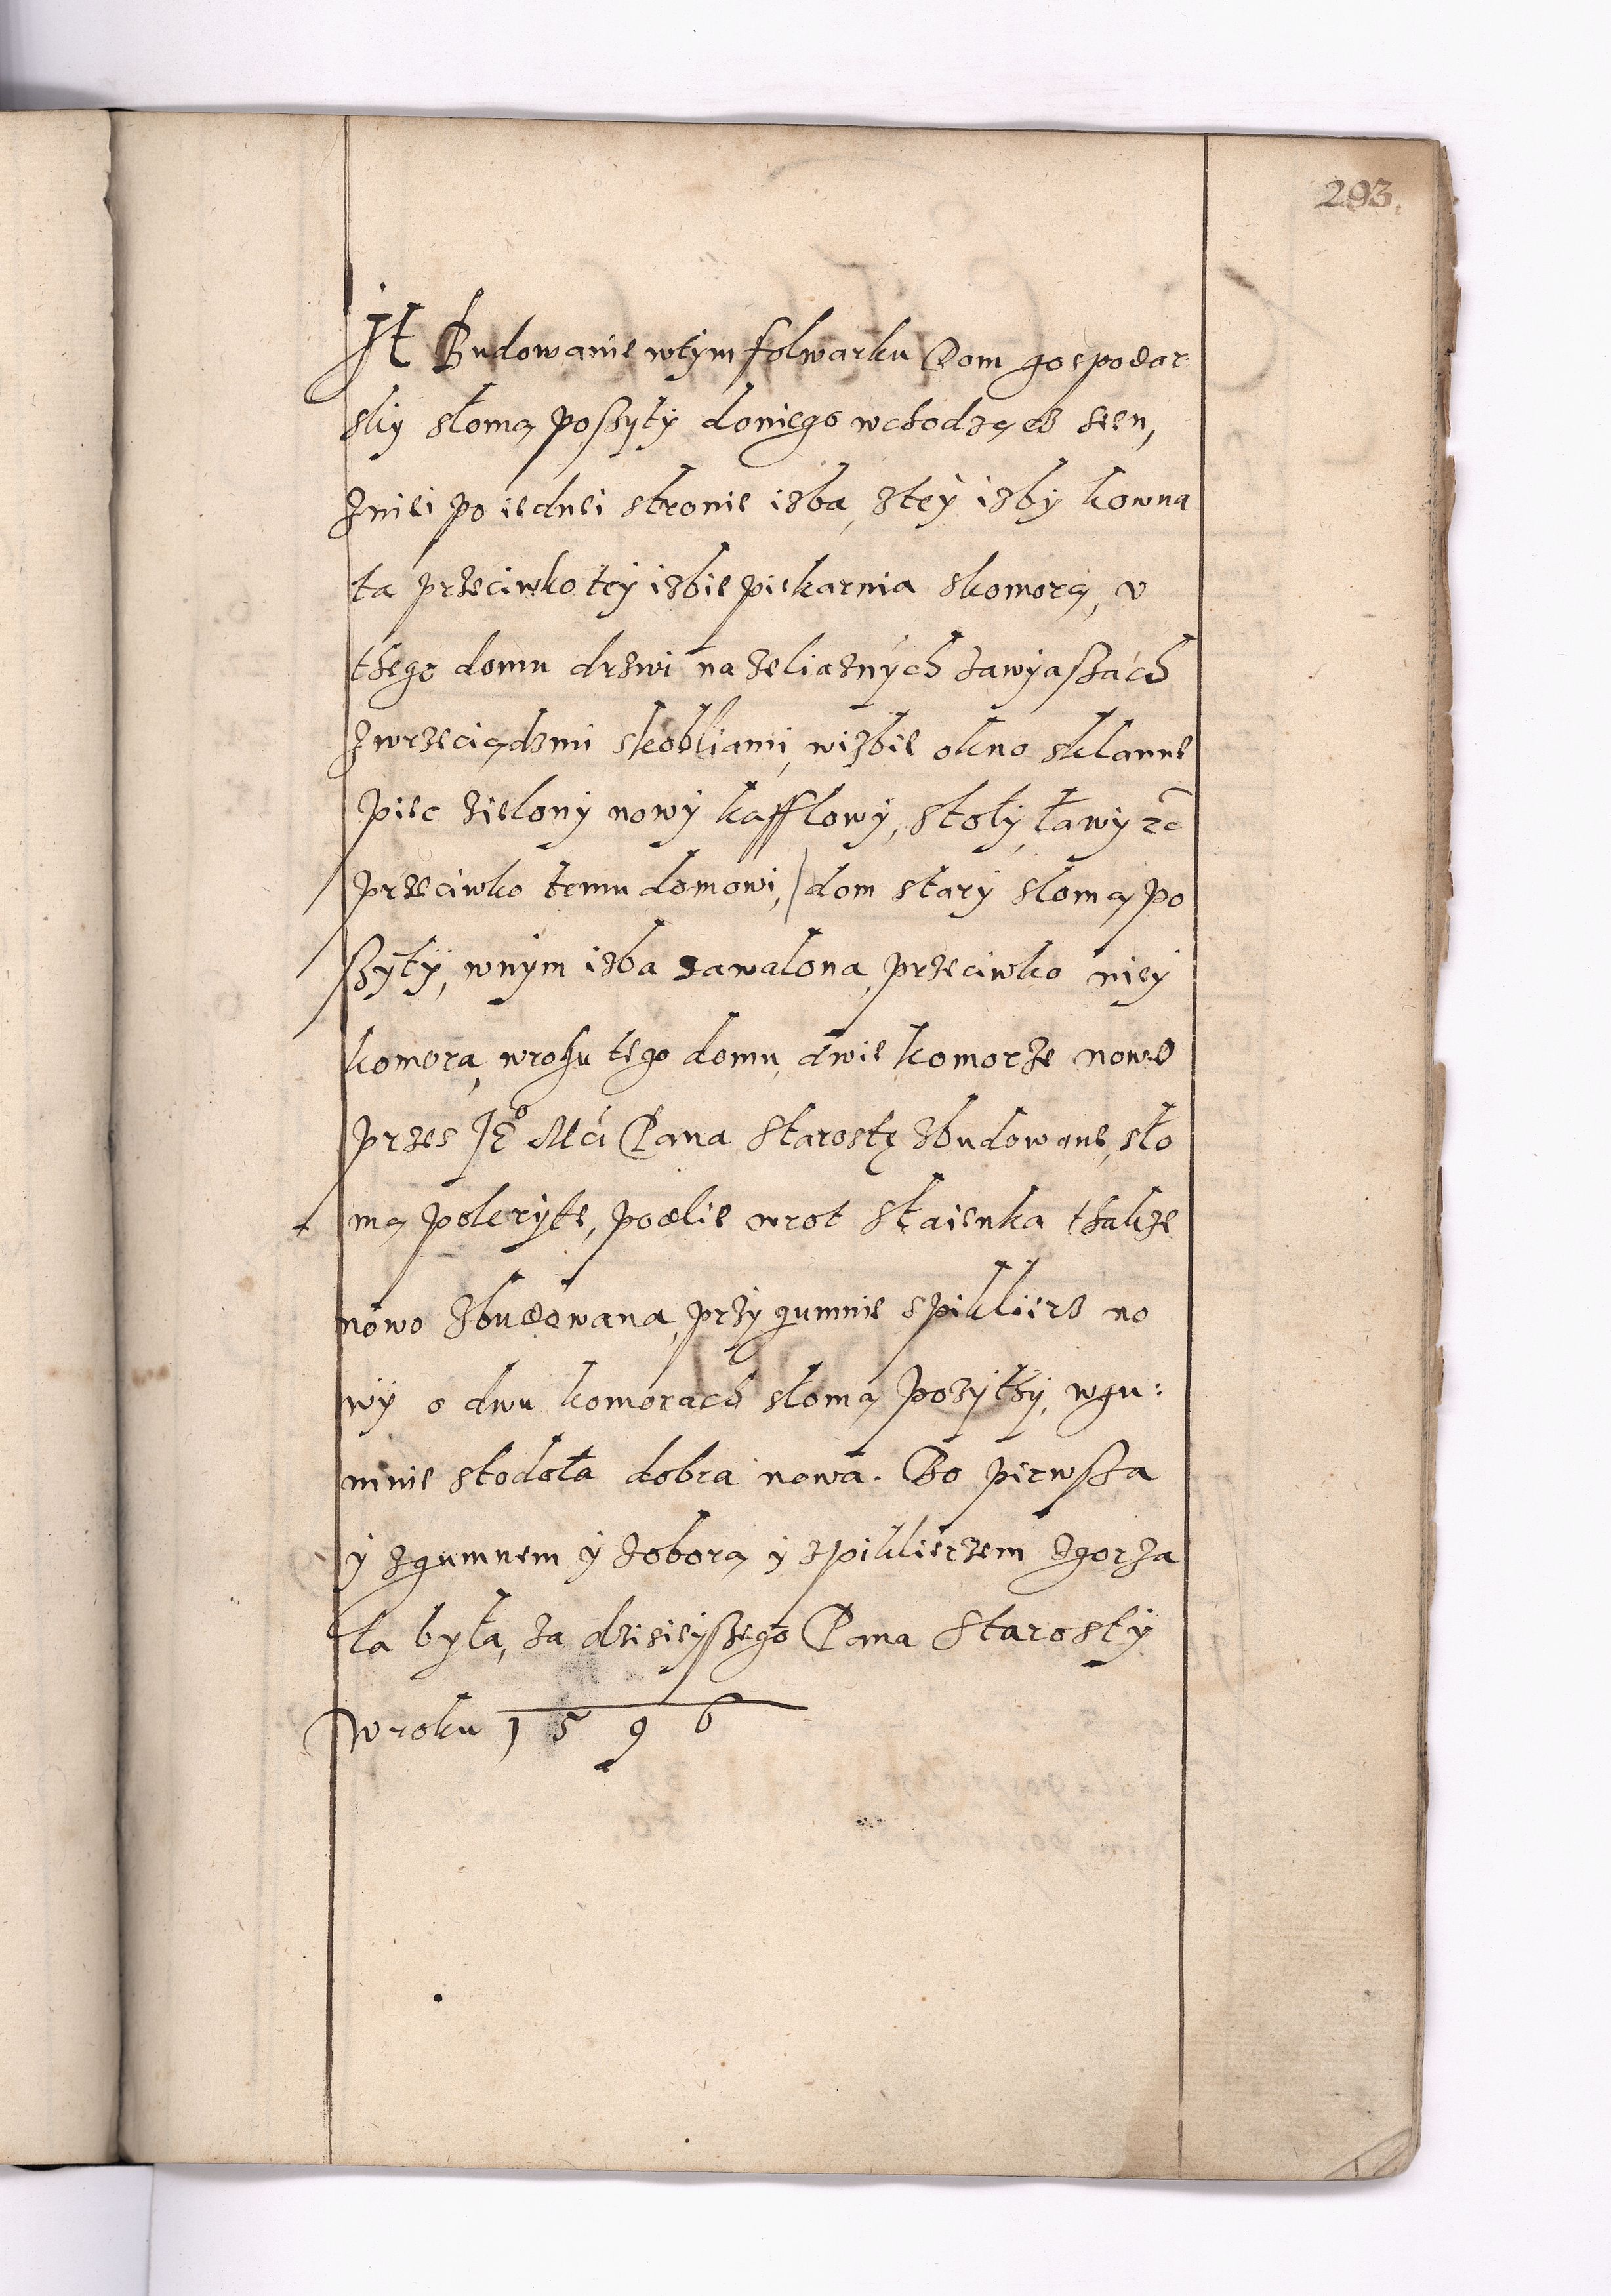 293.
It Budowanie wtym folwarku Dom gospodar:
skiy słomą poszyty doniego wchodząc sien,
zniei po iednei stronie izba, ztey izby komna
ta przeciwko tey izbie piekarnia skomorą, v
thego domu drzwi na zeliaznych zawyaszach
zwrzeciądzmi skobliami, wizbie okno sklanne
piec zielony nowy kafflowy, stoły, ławy zc
przeciwko temu domowi, dom stary słomą po
szyty, wnym izba zawalona, przeciwko niey
komora, wrogu tego domu, dwie komorze nowe
przes JEº Mci Pana Starostę zbudowane, sło
mą pokryte, podlie wrot staienka thakze
nowo zbudowana, przy gumnie spikliers no
wy o dwu komorach słomą pozythy, wgu:
mnie stodoła dobra nowa. Bo pierwsza
y zgumnem y zoborą y zpiklierzem zgorza
ła była, za dzisieyszego Pana Starosty
wroku 1596